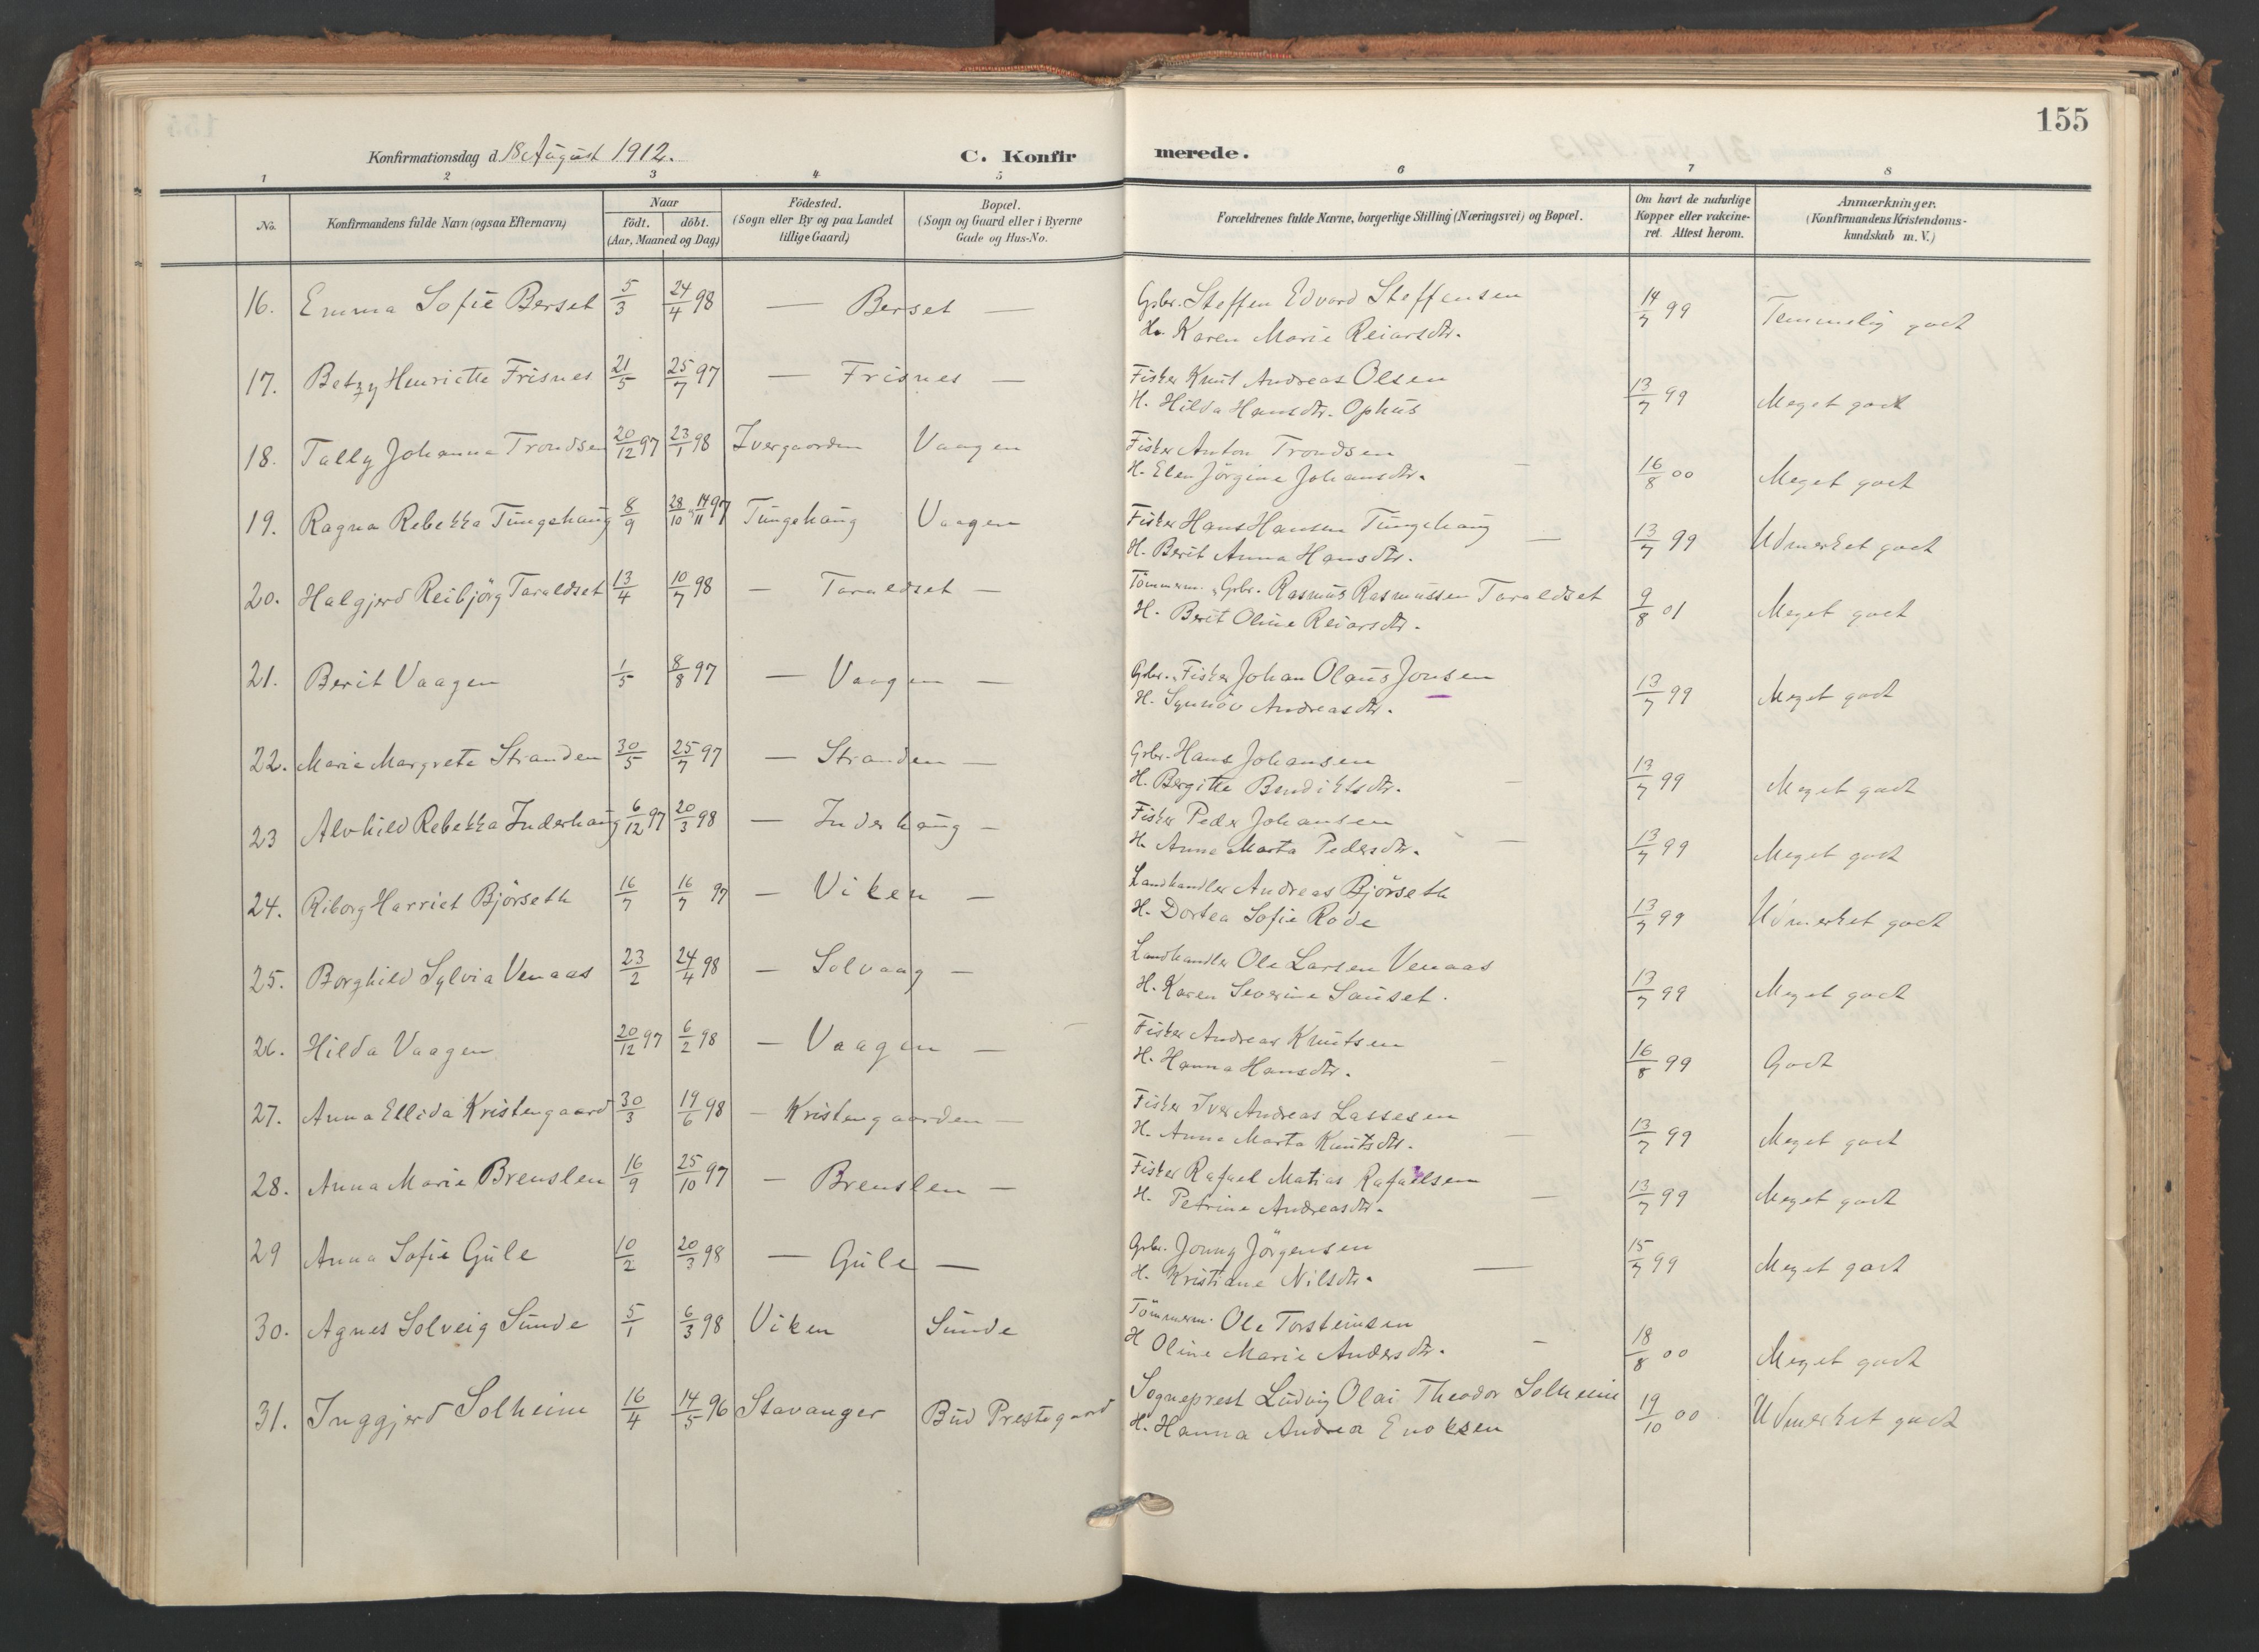 155
Konfirmationsdag d. 18 August 1912.
C. Konfirmerede.
1 2 3 4 5 6 7 8
No.
Konfirmandens fulde Navn (ogsaa Efternavn)
Naar
födt. döbt.
(Aar, Maaned og Dag)
Födested.
(Sogn eller By og paa Landet
tillige Gaard)
Bopæl.
(Sogn og Gaard eller i Byerne
Gade og Hus-No.
Forældrenes fulde Navne, borgerlige Stilling (Næringsvei) og Bopæl.
Om havt de naturlige
Kopper eller vakcine-
ret. Attest herom.
Anmærkninger.
(Konfirmandens Kristendoms-
kundskab m. V.)
16. Emma Sofie Berset 5/3 24/4 98 — Berset — Grbr. Steffen Edvard Steffensen 14/7 99 Temmelig godt
H. Karen Marie Reiarsdtr.
17. Betzy Henriette Frisnes 21/5 25/7 97 — Frisnes — Fisker Knut Andreas Olsen 13/7 99 Meget godt
H. Hilda Hansdtr. Ophus
18. Tally Johanna Trondsen 20/12 97 23/1 98 Ivergaarden Vaagen Fisker Anton Trondsen 16/8 00 Meget godt
H. Elen Jörgine Johansdtr. —
19. Ragna Rebekka Tungehaug 8/9 28/10 14/11 97 Tungehaug Vaagen Fisker Hans Hansen Tungehaug 13/7 99 Udmerket godt
H. Berit Anna Hansdtr. —
20. Halgjerd Reibjörg Taraldset 13/4 10/7 98 — Taraldset — Tömmerm. & Grbr. Rasmus Rasmussen Taraldset 9/8 01 Meget godt
H. Berit Oline Reiarsdtr.
21. Berit Vaagen 1/5 8/8 97 — Vaagen — Grbr. & Fisker Johan Olaus Jonsen 13/7 99 Meget godt
H. Synnöv Andreasdtr.
22. Marie Margrete Stranden 30/5 25/7 97 — Stranden — Grbr. Hans Johansen 13/7 99 Meget godt
H. Bergitte Bendiktsdtr. —
23 Alvhild Rebekka Inderhaug 6/12 97 20/3 98 — Inderhaug — Fisker Peder Johansen 13/7 99 Meget godt
H. Anne Marta Pedersdtr. —
24. Riborg Harriet Björseth 16/7 16/7 97 — Viken — Landhandler Andreas Björseth 13/7 99 Udmerket godt
H. Dortea Sofie Rode
25. Borghild Sylvia Venaas 23/2 24/4 98 — Solvaag — Landhandler Ole Larsen Venaas 13/7 99 Meget godt
H. Karen Severine Sauset.
26. Hilda Vaagen 20/12 97 6/2 98 — Vaagen — Fisker Andreas Knutsen 16/8 99 Godt
H. Hanna Hansdtr. —
27. Anna Ellida Kristengaard 30/3 19/6 98 — Kristengaarden — Fisker Iver Andreas Lassesen 13/7 99 Meget godt
H. Anne Marta Knutsdtr. —
28. Anna Marie Brenslen 16/9 25/10 97 — Brenslen — Fisker Rafael Matias Rafaelsen 13/7 99 Meget godt
H. Petrine Andreasdtr. —
29 Anna Sofie Gule 10/2 20/3 98 — Gule — Grbr. Jonny Jörgensen 15/7 99 Meget godt
H. Kristiane Nilsdtr. —
30. Agnes Solveig Sunde 5/1 6/3 98 Viken Sunde Tömmerm. Ole Torsteinsen 18/8 00 Meget godt
H Oline Marie Andersdtr. —
31. Inggjerd Solheim 16/4 14/5 96 Stavanger Bud Prestegaard Sogneprest Ludvig Olai Theodor Solheim 19/10 00 Udmerket godt
H. Hanna Andrea Enoksen